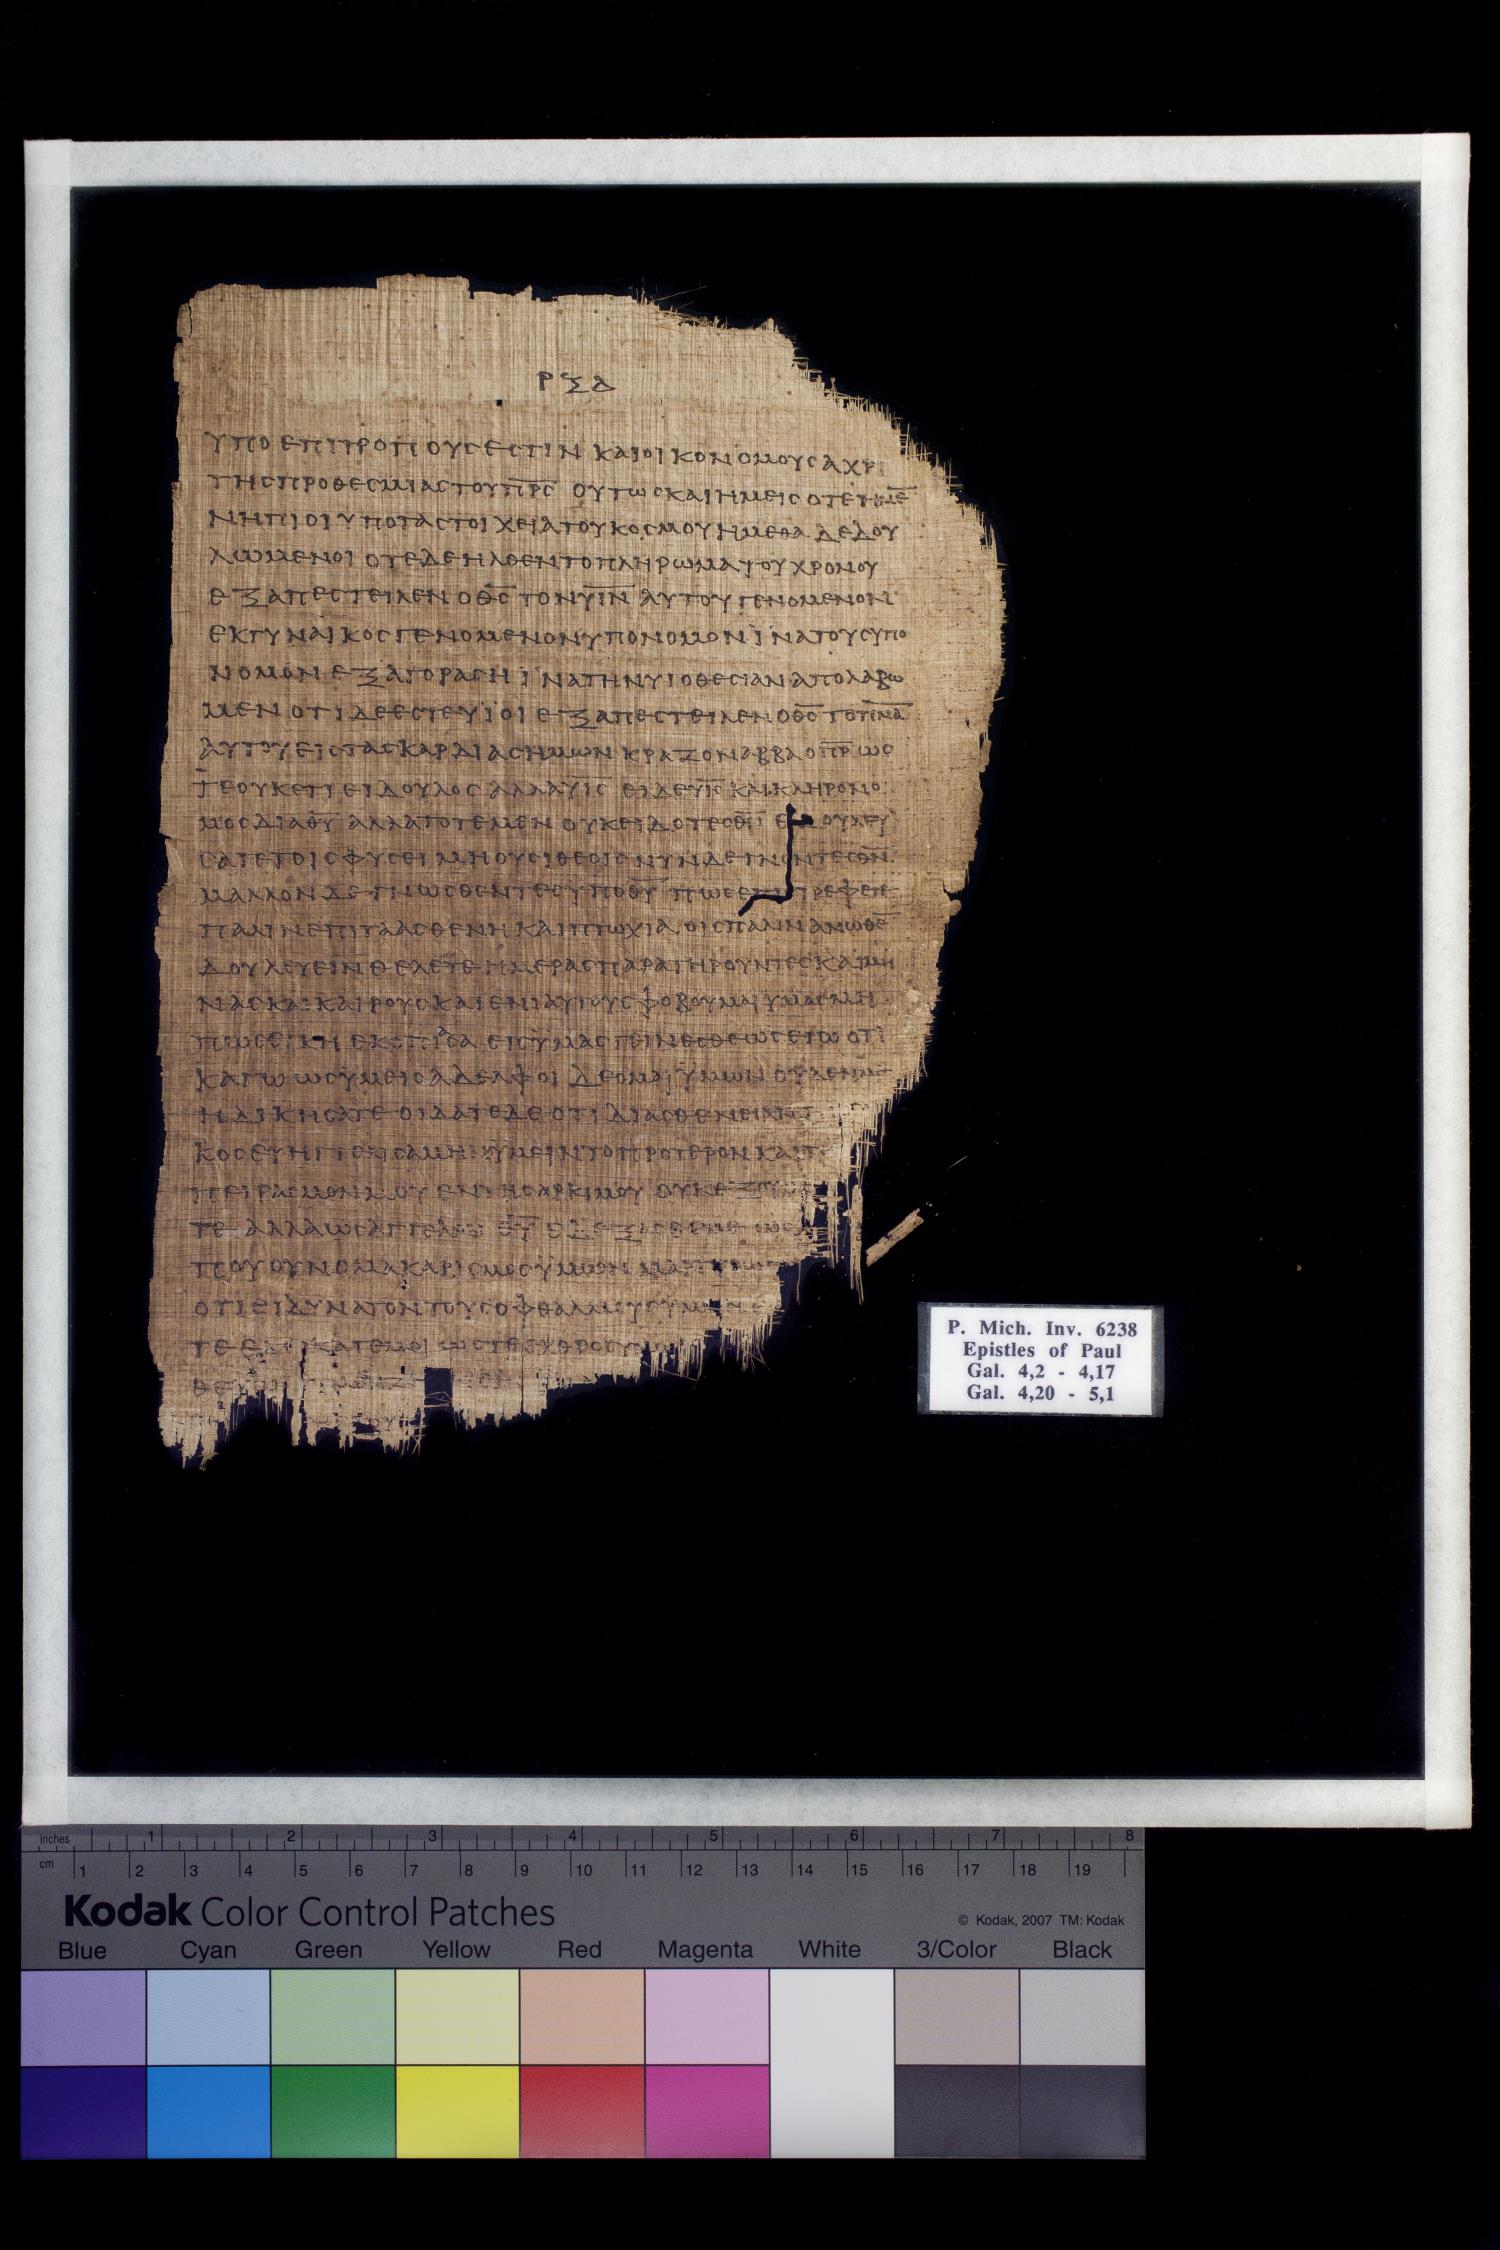 ΡΞΔ
ΥΠΟ ΕΠΙΤΡΟΠΟΥΣ ΕΣΤΙΝ ΚΑΙ ΟΙΚΟΝΟΜΟΥΣ ΑΧΡΙ
ΤΗΣ ΠΡΟΘΕΣΜΙΑΣ ΤΟΥ Π̅Ρ̅Σ̅ ΟΥΤΩΣ ΚΑΙ ΗΜΕΙΣ ΟΤΕ ΗΜΕ̅
ΝΗΠΙΟΙ ΥΠΟ ΤΑ ΣΤΟΙΧΕΙΑ ΤΟΥ ΚΟΣΜΟΥ ΗΜΕΘΑ ΔΕΔΟΥ
ΛΩΜΕΝΟΙ ΟΤΕ ΔΕ ΗΛΘΕΝ ΤΟ ΠΛΗΡΩΜΑ ΤΟΥ ΧΡΟΝΟΥ
ΕΞΑΠΕΣΤΕΙΛΕΝ Ο Θ̅Σ̅ ΤΟΝ Υ̅Ι̅Ν̅ ΑΥΤΟΥ ΓΕΝΟΜΕΝΟΝ
ΕΚ ΓΥΝΑΙΚΟΣ ΓΕΝΟΜΕΝΟΝ ΥΠΟ ΝΟΜΟΝ ΙΝΑ ΤΟΥΣ ΥΠΟ
ΝΟΜΟΝ ΕΞΑΓΟΡΑΣΗ ΙΝΑ ΤΗΝ ΥΙΟΘΕΣΙΑΝ ΑΠΟΛΑΒΩ
ΜΕΝ ΟΤΙ ΔΕ ΕΣΤΕ ΥΙΟΙ ΕΞΑΠΕΣΤΕΙΛΕΝ Ο Θ̅Σ̅ ΤΟ Π̅Ν̅Α̅
ΑΥΤΟΥ ΕΙΣ ΤΑΣ ΚΑΡΔΙΑΣ ΗΜΩΝ ΚΡΑΖΟΝ ΑΒΒΑ Ο Π̅Ρ̅ ΩΣ
ΤΕ ΟΥΚΕΤΙ ΕΙ ΔΟΥΛΟΣ ΑΛΛΑ Υ̅Ι̅Σ̅ ΕΙ ΔΕ Υ̅Σ̅ ΚΑΙ ΚΛΗΡΟΝΟ
ΜΟΣ ΔΙΑ Θ̅Υ̅ ΑΛΛΑ ΤΟΤΕ ΜΕΝ ΟΥΚ ΕΙΔΟΤΕΣ Θ̅Ν̅ ΕΔΟΥΛΕΥ
ΣΑΤΕ ΤΟΙΣ ΦΥΣΕΙ ΜΗ ΟΥΣΙ ΘΕΟΙΣ ΝΥΝ ΔΕ ΓΝΟΝΤΕΣ Θ̅Ν̅
ΜΑΛΛΟΝ ΔΕ ΓΝΩΣΘΕΝΤΕΣ ΥΠΟ Θ̅Υ̅ ΠΩΣ ΕΠΙΣΤΡΕΦΕΤΕ
ΠΑΛΙΝ ΕΠΙ ΤΑ ΑΣΘΕΝΗ ΚΑΙ ΠΤΩΧΑ ΟΙΣ ΠΑΛΙΝ ΑΝΩΘΕ̅
ΔΟΥΛΕΥΕΙΝ ΘΕΛΕΤΕ ΗΜΕΡΑΣ ΠΑΡΑΤΗΡΟΥΝΤΕΣ ΚΑΙ ΜΗ
ΝΑΣ ΚΑΙ ΚΑΙΡΟΥΣ ΚΑΙ ΕΝΙΑΥΤΟΥΣ ΦΟΒΟΥΜΑΙ ΥΜΑΣ ΜΗ
ΠΩΣ ΕΙΚΗ ΕΚΟΠΙΑΣΑ ΕΙΣ ΥΜΑΣ ΓΕΙΝΕΣΘΕ ΩΣ ΕΓΩ ΟΤΙ
ΚΑΓΩ ΩΣ ΥΜΕΙΣ ΑΔΕΛΦΟΙ ΔΕΟΜΑΙ ΥΜΩΝ ΟΥΔΕΝ ΜΕ
ΗΔΙΚΗΣΑΤΕ ΟΙΔΑΤΕ ΔΕ ΟΤΙ ΔΙ ΑΣΘΕΝΕΙΑΝ
ΚΟΣ ΕΥΗΓΓΕΛΙΣΑΜΗΝ ΥΜΕΙΝ ΤΟ ΠΡΟΤΕΡΟΝ ΚΑΙ Τ
ΠΕΙΡΑΣΜΟΝ ΜΟΥ ΕΝ ΤΗ ΣΑΡΚΙ ΜΟΥ ΟΥΚ ΕΞΟΥ
ΤΕ ΑΛΛΑ ΩΣ ΑΓΓΕΛΟΝ Θ̅Υ̅ ΕΔΕΞΑΣΘΕ ΜΕ
ΠΟΥ ΟΥΝ Ο ΜΑΚΑΡΙΣΜΟΣ ΥΜΩΝ ΜΑ
ΟΤΙ ΕΙ ΔΥΝΑΤΟΝ ΤΟΥΣ ΟΦΘΑΛΜΟΥΣ ΥΜΩΝ
ΤΕ ΕΔΩΚΑΤΕ ΜΟΙ ΩΣΤΕ ΕΧΘΡΟΣ Υ
P. Mich. Inv. 6238
Epistles of Paul
Gal. 4,2 - 4,17
Gal. 4,20 - 5,1
inches 1 2 3 4 5 6 7 8
cm 1 2 3 4 5 6 7 8 9 10 11 12 13 14 15 16 17 18 19
Kodak Color Control Patches
© Kodak, 2007 TM: Kodak
Blue Cyan Green Yellow Red Magenta White 3/Color Black